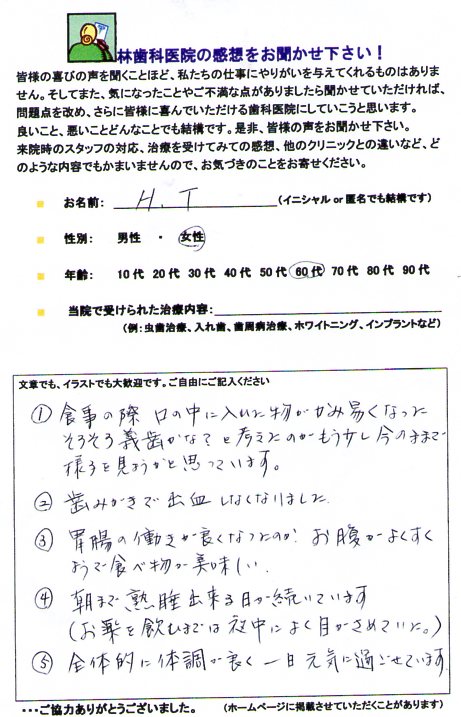 林歯科医院の感想をお聞かせ下さい！
皆様の喜びの声を聞くことほど、私たちの仕事にやりがいを与えてくれるものはありま
せん。そしてまた、気になったことやご不満な点がありましたら聞かせていただければ、
問題点を改め、さらに皆様に喜んでいただける歯科医院にしていこうと思います。
良いこと、悪いことどんなことでも結構です。是非、皆様の声をお聞かせ下さい。
来院時のスタッフの対応、治療を受けてみての感想、他のクリニックとの違いなど、ど
のような内容でもかまいませんので、お気づきのことをお寄せください。
お名前： H.T （イニシャル or 匿名でも結構です）
性別： 男性 ・ 女性
年齢： 10代 20代 30代 40代 50代 60代 70代 80代 90代
当院で受けられた治療内容：
（例：虫歯治療、入れ歯、歯周病治療、ホワイトニング、インプラントなど）
文章でも、イラストでも大歓迎です。ご自由にご記入ください
① 食事の際 口の中に入れた物がかみ易くなった
そろそろ義歯かなぁと考えたのがもう少し今のままで
様子を見ようかと思っています。
② 歯みがきで出血しなくなりました.
③ 胃腸の働きが良くなったのか? お腹がよくすく
ようで食べ物が美味しい.
④ 朝まで熟睡出来る日が続いています
(お薬を飲むまでは夜中によく目がさめていた。)
⑤ 全体的に体調が良く 一日元気に過ごせています
・・・ご協力ありがとうございました。 （ホームページに掲載させていただくことがあります）